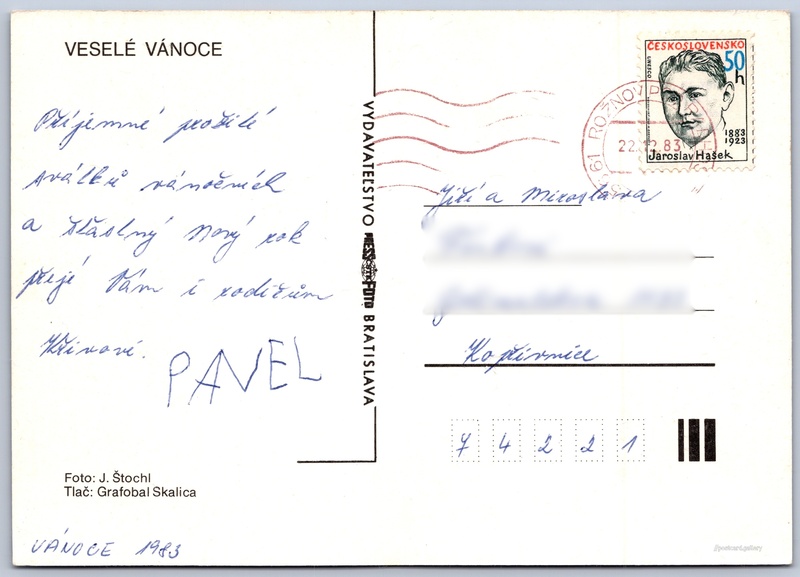 VESELÉ VÁNOCE
Příjemné prožití
svátků vánočních
a šťastný Nový rok
přeje Vám i rodičům
Křivovi.
PAVEL
Foto: J. Štochl
Tlač: Grafobal Skalica
VÁNOCE 1983
VYDAVATEĽSTVO
FOTO BRATISLAVA
ČESKOSLOVENSKO
50
h
UNESCO
1883
1923
Jaroslav Hašek
ROŽNOV P
22.12.83
Jiří a Miroslava
Kopřivnice
74221